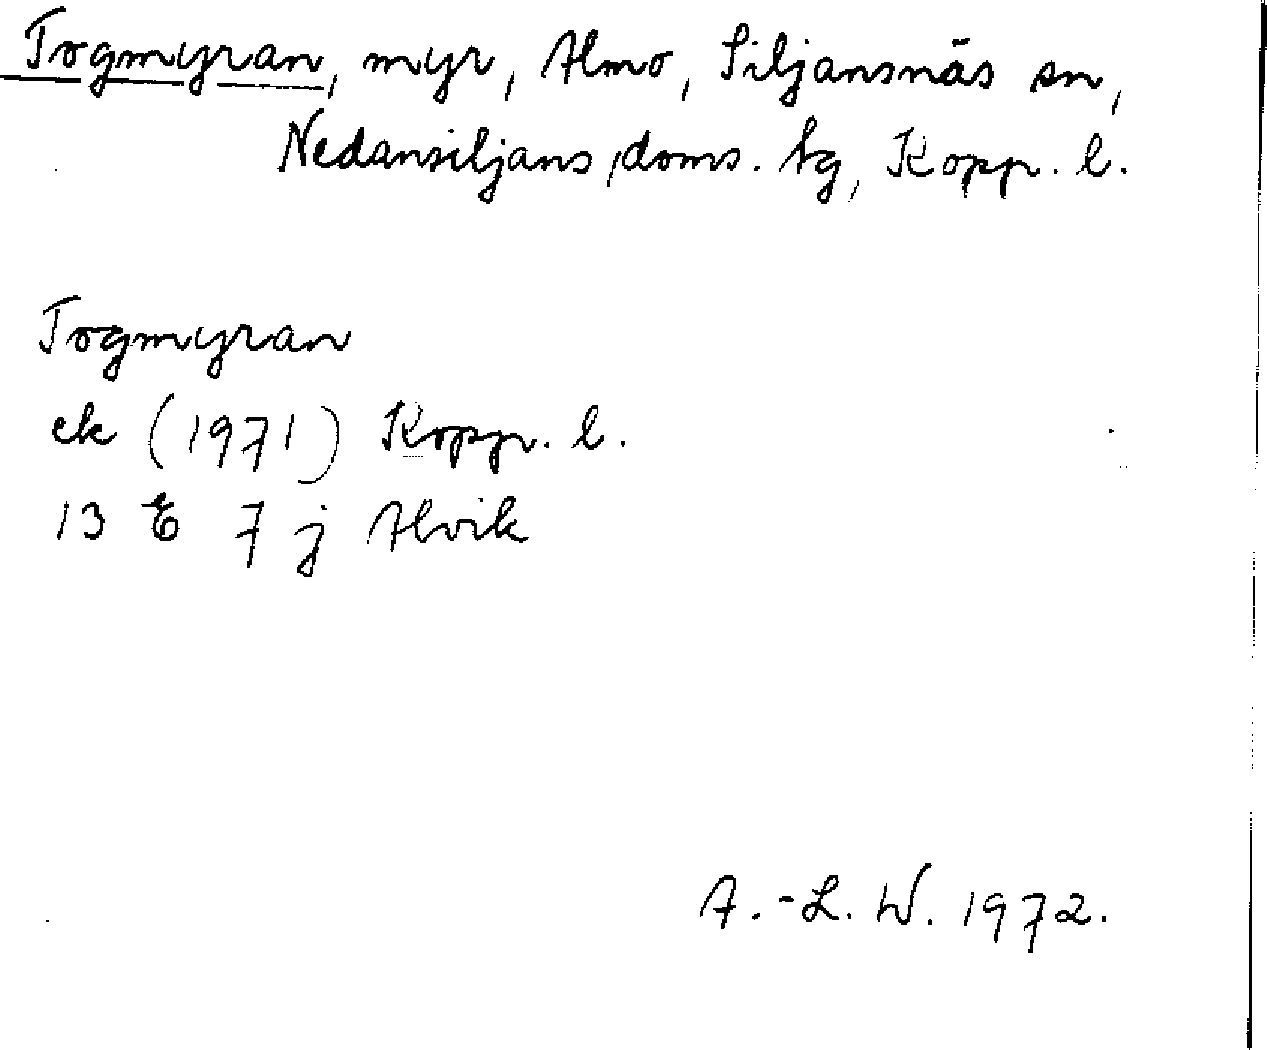 Togmyran, myr, Almo, Siljansnäs sn,
Nedansiljans doms. tg, Kopp. l.
Togmyran
ek (1971) Kopp. l.
13 E 7 j Alvik
A.-L. W. 1972.